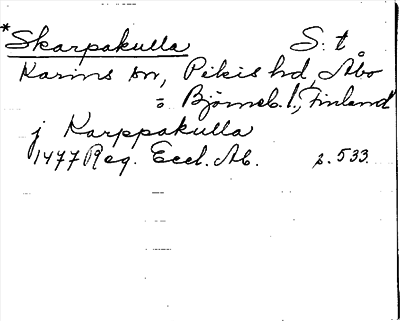 * Skarpakulla S. t
Karins sn, Pikis hd, Åbo
o Björneb. l., Finland
j Karppakulla
1477 Reg. Eccl. Ab. s. 533.